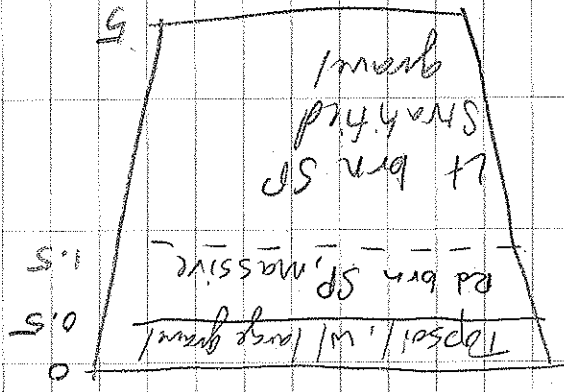 0
Topsoil, w/ large gravel
0.5
Rd brn SP, massive
1.5
Lt brn SP
Stratified
gravel
5